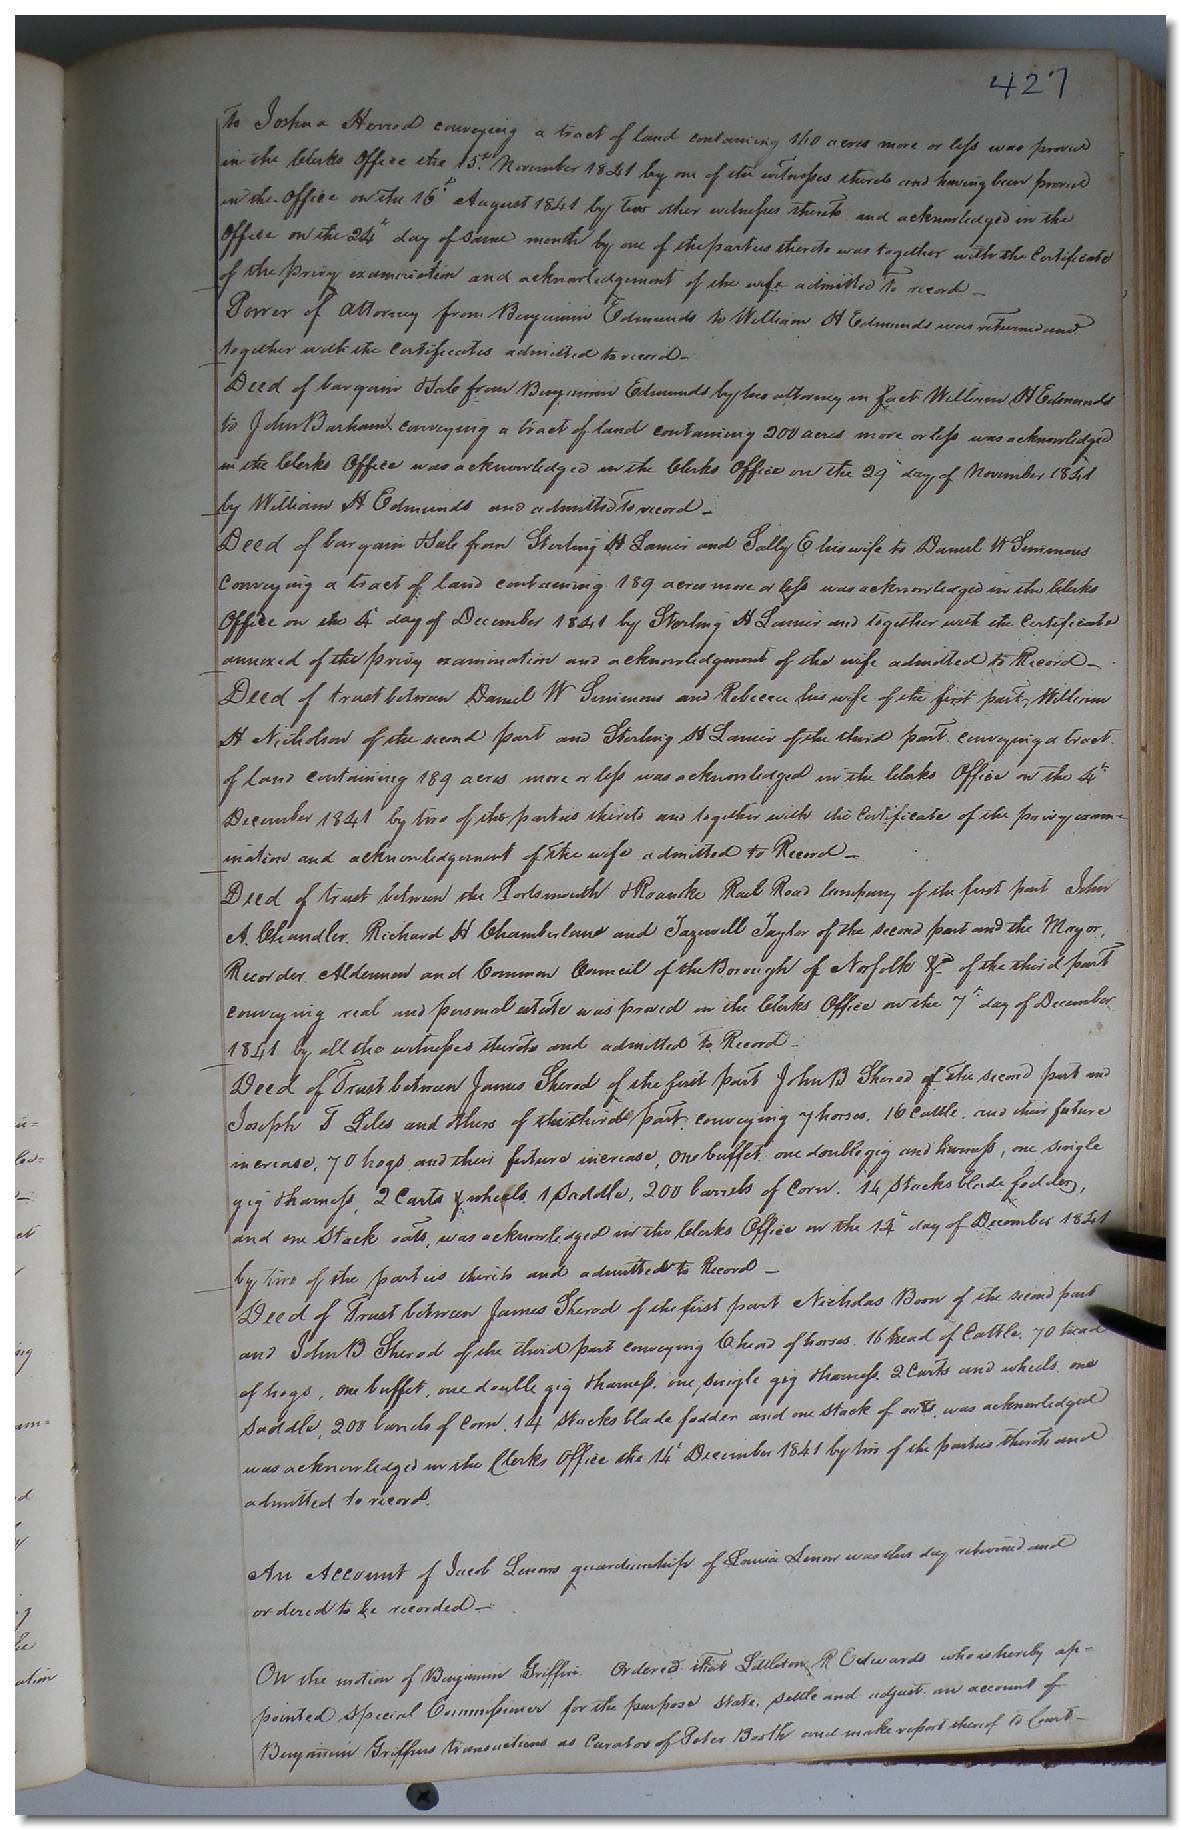 427
to Joshua Herrod conveying a tract of land containing 160 acres more or less was proved
in the Clerks Office the 15th November 1841 by one of the witnesses thereto and having been proved
in the Office on the 16th August 1841 by two other witnesses thereto and acknowledged in the
Office on the 24th day of same month by one of the parties thereto was together with the Certificate
of the privy examination and acknowledgement of the wife admitted to record
Power of Attorney from Benjamin Edmunds to William H Edmunds was returned and
together with the Certificates admitted to record
Deed of bargain & Sale from Benjamin Edmunds by his attorney in fact William H Edmunds
to John Barham conveying a tract of land containing 200 acres more or less was acknowledged
in the Clerks Office was acknowledged in the Clerks Office on the 29th day of November 1841
by William H Edmunds and admitted to record
Deed of bargain & Sale from Sterling H Lanier and Sally E his wife to Daniel W Simmons
Conveying a tract of land containing 189 acres more or less was acknowledged in the Clerks
Office on the 4th day of December 1841 by Sterling H Lanier and together with the Certificate
annexed of the privy examination and acknowledgment of the wife admitted to Record
Deed of trust between Daniel W Simmons and Rebecca his wife of the first part, William
H Nicholson of the second part and Sterling H Lanier of the third part conveying a tract
of land containing 189 acres more or less was acknowledged in the Clerks Office on the 4th
December 1841 by two of the parties thereto and together with the Certificate of the privy exam=
ination and acknowledgement of the wife admitted to Record
Deed of trust between the Portsmouth & Roanoke Rail Road Company of the first part John
A. Chandler, Richard H Chamberlane and Tazewell Taylor of the second part and the Mayor,
Recorder Aldermen and Common Council of the Borough of Norfolk &c of the third part
conveying real and personal estate was proved in the Clerks Office on the 7th day of December
1841 by all the witnesses thereto and admitted to Record
Deed of Trust between James Sherod of the first part John B Sherod of the second part and
Joseph T Giles and others of the third part, conveying 7 horses, 16 Cattle, and their future
increase, 70 hogs and their future increase, one buffet, one double gig and harness, one single
gig & harness, 2 Carts & wheels 1 Saddle, 200 barrels of Corn, 14 Stacks blade fodder,
and one Stack oats, was acknowledged in the Clerks Office on the 14th day of December 1841
by two of the parties thereto and admitted to Record
Deed of Trust between James Sherod of the first part Nicholas Born of the second part
and John B Sherod of the third part conveying 6 head of horses, 16 head of Cattle, 70 head
of hogs, one buffet, one double gig & harness, one single gig & harness, 2 Carts and wheels, one
Saddle, 200 barrels of Corn, 14 Stacks blade fodder and one Stack of oats, was acknowledged
was acknowledged in the Clerks Office the 14th December 1841 by two of the parties thereto and
admitted to record.
An Account of Jacob Lenows guardianship of Louisa Lenow was this day returned and
ordered to be recorded
On the motion of Benjamin Griffin. Ordered that Littleton R Edwards who is hereby ap=
pointed Special Commissioner for the purpose state, settle and adjust an account of
Benjamin Griffins transactions as Curator of Peter Booth and make report thereof to Court